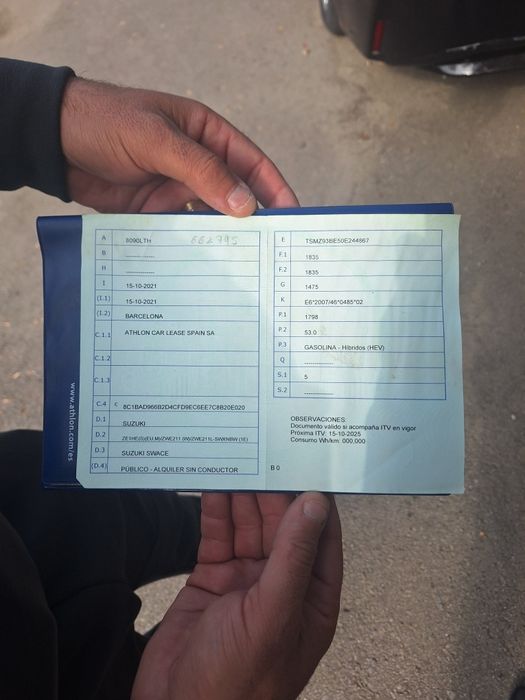 A 8090LTH EE2795
B ------------
H ------------
I 15-10-2021
(I.1) 15-10-2021
(I.2) BARCELONA
C.1.1 ATHLON CAR LEASE SPAIN SA
C.1.2
C.1.3
C.4 C 8C1BAD966B2D4CFD9EC6EE7C8B20E020
D.1 SUZUKI
D.2
D.3 SUZUKI SWACE
(D.4) PÚBLICO - ALQUILER SIN CONDUCTOR
E TSMZ93BE50E244867
F.1 1835
F.2 1835
G 1475
K E6*2007/46*0485*02
P.1 1798
P.2 53.0
P.3 GASOLINA - Híbridos (HEV)
Q ------------
S.1 5
S.2 ------------
OBSERVACIONES:
Documento válido si acompaña ITV en vigor
Próxima ITV: 15-10-2025
Consumo Wh/km: 000,000
B 0
www.athlon.com/es